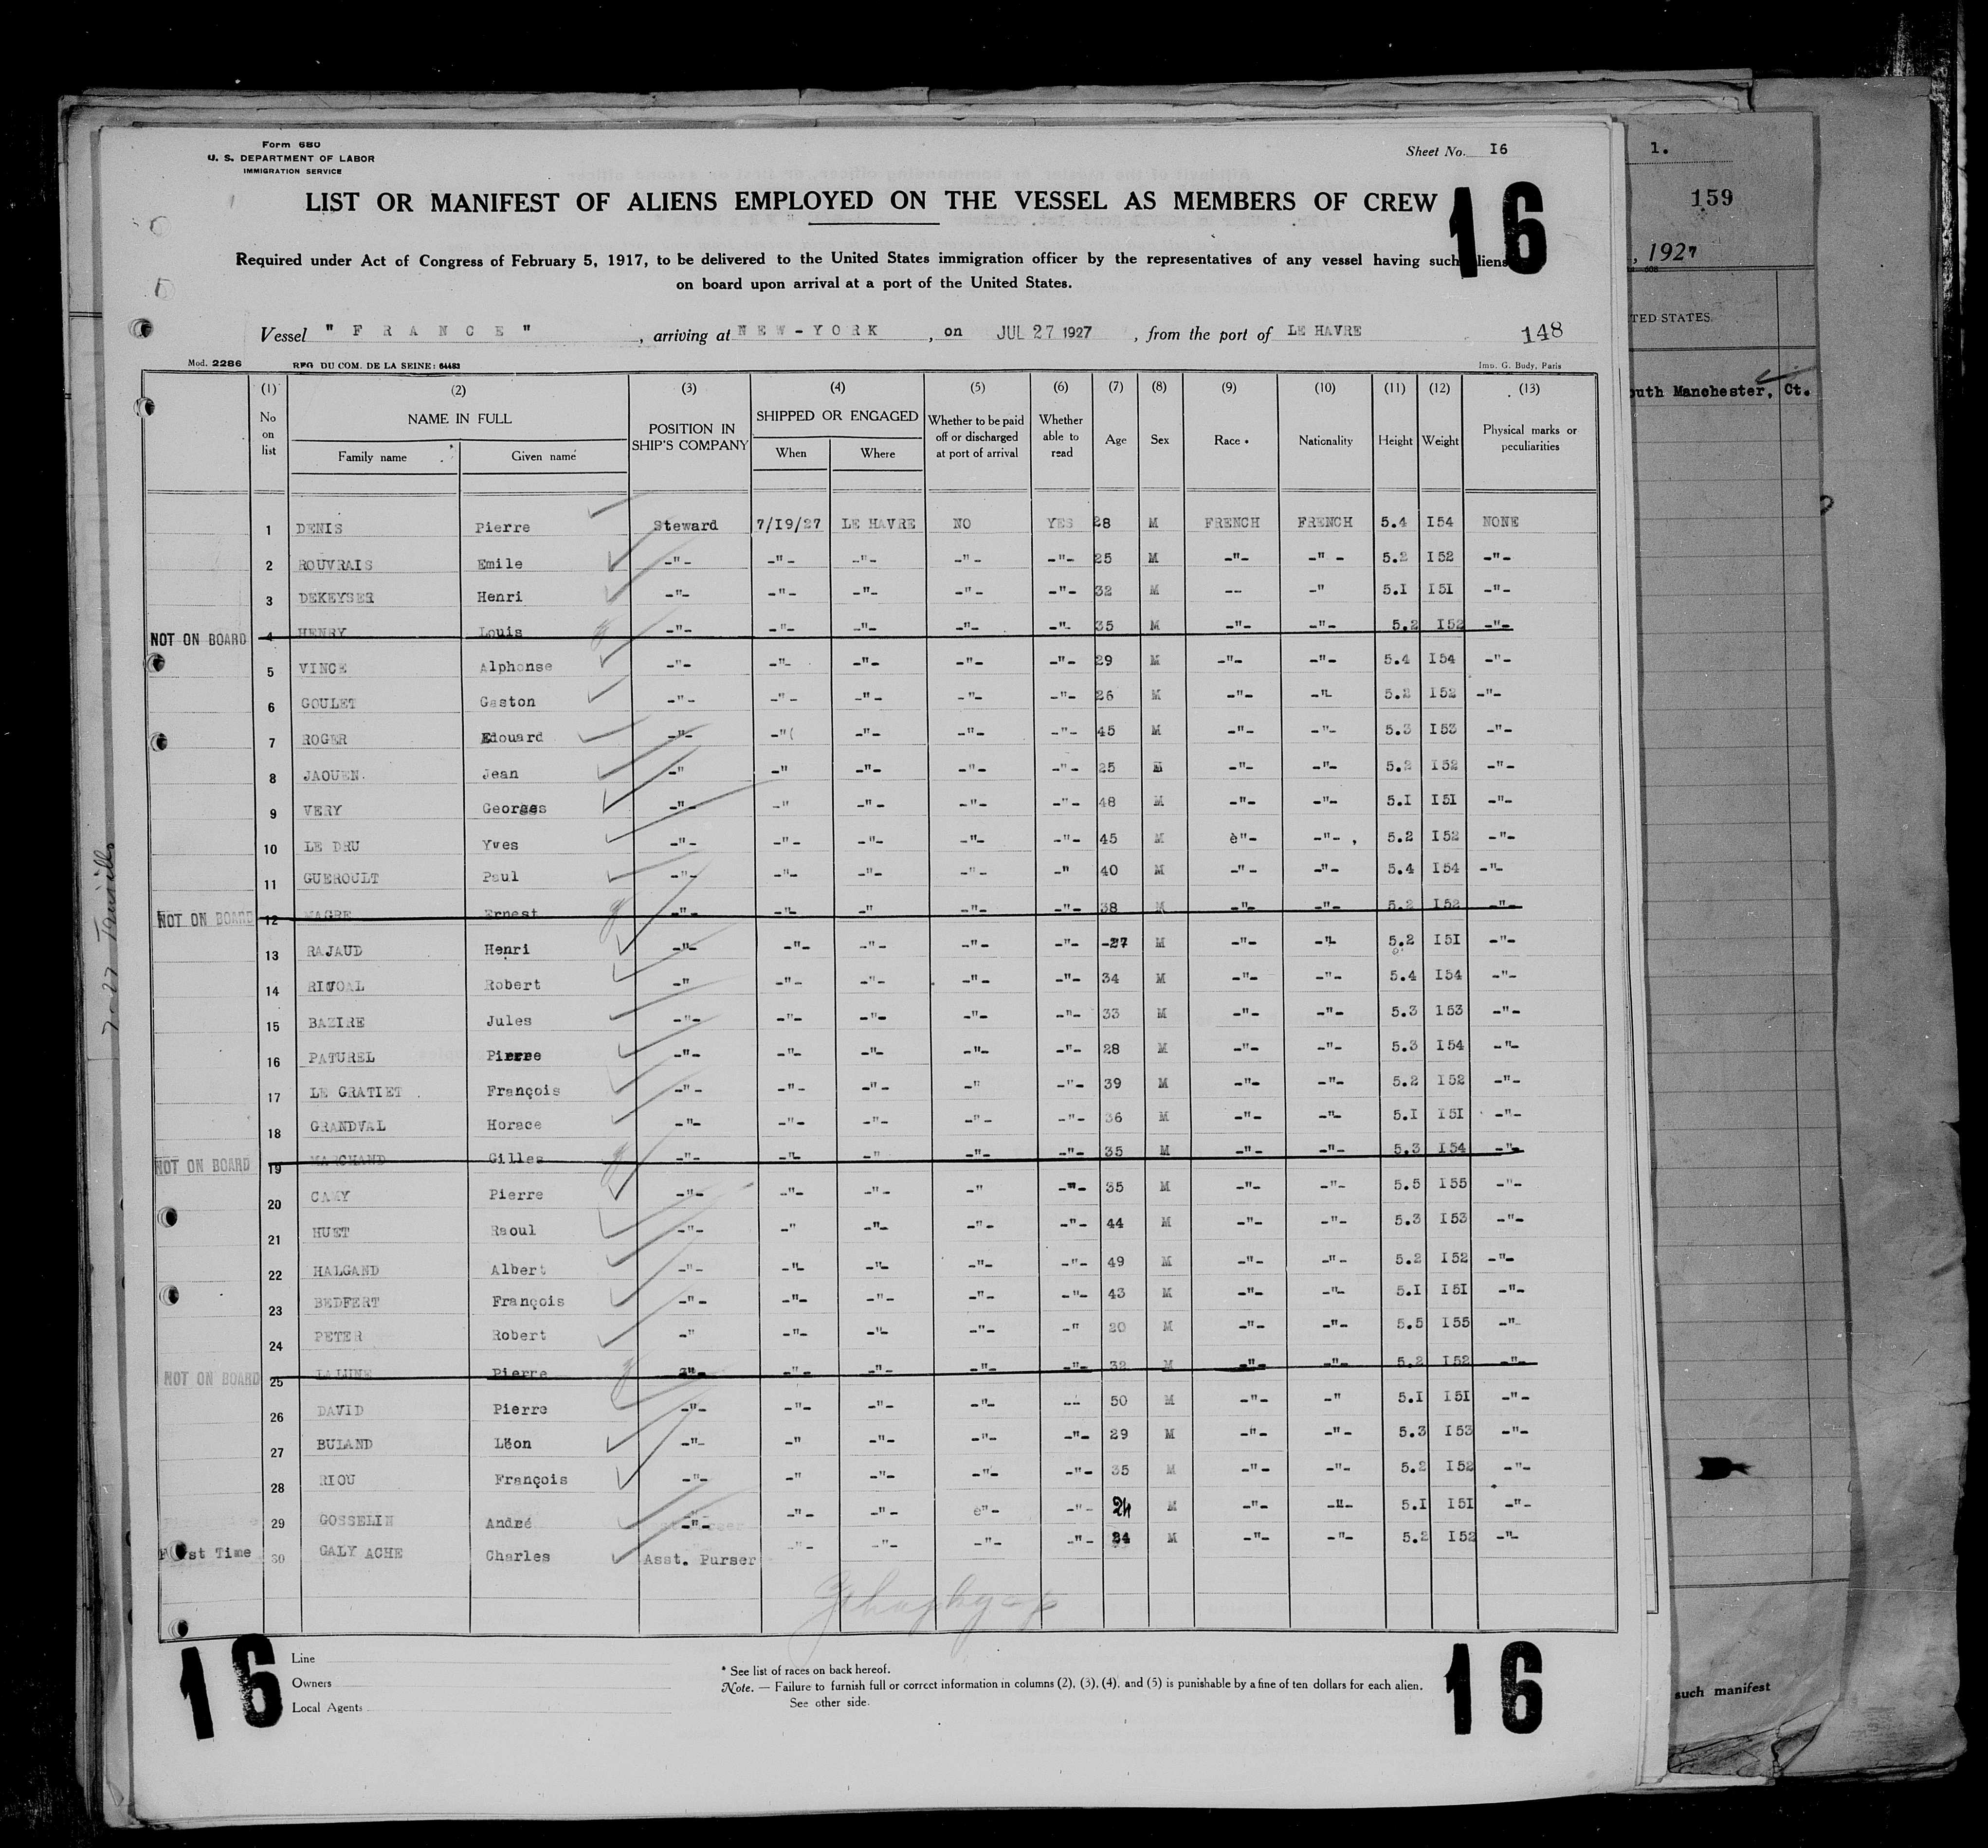 Form 680
U. S. DEPARTMENT OF LABOR
IMMIGRATION SERVICE
Sheet No. I6
LIST OR MANIFEST OF ALIENS EMPLOYED ON THE VESSEL AS MEMBERS OF CREW
16
Required under Act of Congress of February 5, 1917, to be delivered to the United States immigration officer by the representatives of any vessel having such aliens
on board upon arrival at a port of the United States.
Vessel " F R A N C E " , arriving at N E W - Y O R K , on JUL 27 1927 , from the port of LE HAVRE 148
Mod. 2286 REG DU COM. DE LA SEINE: 64483 Imp. G. Budy, Paris
(1) (2) (3) (4) (5) (6) (7) (8) (9) (10) (11) (12) (13)
No on list NAME IN FULL Family name Given name POSITION IN SHIP'S COMPANY SHIPPED OR ENGAGED When Where Whether to be paid off or discharged at port of arrival Whether able to read Age Sex Race * Nationality Height Weight Physical marks or peculiarities
1 DENIS Pierre Steward 7/I9/27 LE HAVRE NO YES 28 M FRENCH FRENCH 5.4 I54 NONE
2 ROUVRAIS Emile -"- -"- -"- -"- -"- 25 M -"- -" - 5.2 I52 -"-
3 DEKEYSER Henri -"- -"- -"- -"- -"- 32 M -- -" 5.I I5I -"-
NOT ON BOARD 4 HENRY Louis -"- -"- -"- -"- -"- 35 M -"- -"- 5.2 I52 -"-
5 VINCE Alphonse -"- -"- -"- -"- -"- 29 M -"- -"- 5.4 I54 -"-
6 GOULET Gaston -"- -"- -"- -"- -"- 26 M -"- -"- 5.2 I52 -"-
7 ROGER Edouard -"- -"( -"- -"- -"- 45 M -"- -"- 5.3 I53 -"-
8 JAOUEN. Jean -" -" -"- -"- -"- 25 M -"- -"- 5.2 I52 -"-
9 VERY Georges -"- -" -"- -"- -"- 48 M -"- -"- 5.I I5I -"-
10 LE DRU Yves -"- -"- -"- -"- -"- 45 M è"- -"- , 5.2 I52 -"-
11 GUEROULT Paul -"- -"- -"- -"- -" 40 M -"- -"- 5.4 I54 -"-
NOT ON BOARD 12 MAGRE Ernest -"- -"- -" -"- -"- 38 M -"- -"- 5.2 I52 -"-
13 RAJAUD Henri -"- -"- -"- -"- -"- -27 M -"- -"- 5.2 I5I -"-
14 Robert -" -"- -"- -"- -"- 34 M -"- -"- 5.4 I54 -"-
15 BAZIRE Jules -"- -"- -"- -"- -"- 33 M -"- -"- 5.3 I53 -"-
16 PATUREL Pierre -"- -"- -"- -"- -"- 28 M -"- -"- 5.3 I54 -"-
17 LE GRATIET . François -"- -"- -"- -" -"- 39 M -"- -"- 5.2 I52 -"-
18 GRANDVAL Horace -"- -"- -"- -"- -"- 36 M -"- -"- 5.I I5I -"-
NOT ON BOARD 19 MARCHAND Gilles -"- -"- -" -"- -"- 35 M -"- -"- 5.3 I54 -"-
20 CAMY Pierre -"- -"- -"- -" -"- 35 M -"- -"- 5.5 I55 -"-
21 HUET Raoul -"- -" -"- -"- -"- 44 M -"- -"- 5.3 I53 -"-
22 HALGAND Albert -"- -"- -"- -"- -"- 49 M -"- -"- 5.2 I52 -"-
23 BEDFERT François -"- -"- -"- -"- -"- 43 M -"- -"- 5.I I5I -"-
24 PETER Robert -" -"- -"- -"- -" 20 M -"- -"- 5.5 I55 -"-
NOT ON BOARD 25 LALUNE Pierre -"- -"- -"- -"- -"- 32 M -"- -"- 5.2 I52 -"-
26 DAVID Pierre -"- -"- -"- -"- -- 50 M -"- -" 5.I I5I -"-
27 BULAND Léon -"- -" -"- -"- -"- 29 M -"- -"- 5.3 I53 -"-
28 RIOU François -"- -" -"- -"- -"- 35 M -"- -"- 5.2 I52 -"-
29 GOSSELIN André -"- -"- -"- è"- -"- 24 M -"- -"- 5.I I5I -"-
First Time 30 GALY ACHE Charles Asst. Purser -"- -"- -"- -"- 24 M -"- -"- 5.2 I52 -"-
16
Line
Owners
Local Agents
* See list of races on back hereof.
Note. — Failure to furnish full or correct information in columns (2), (3), (4), and (5) is punishable by a fine of ten dollars for each alien.
See other side.
16
1.
159
, 1927
TED STATES.
outh Manchester, Ct.
such manifest